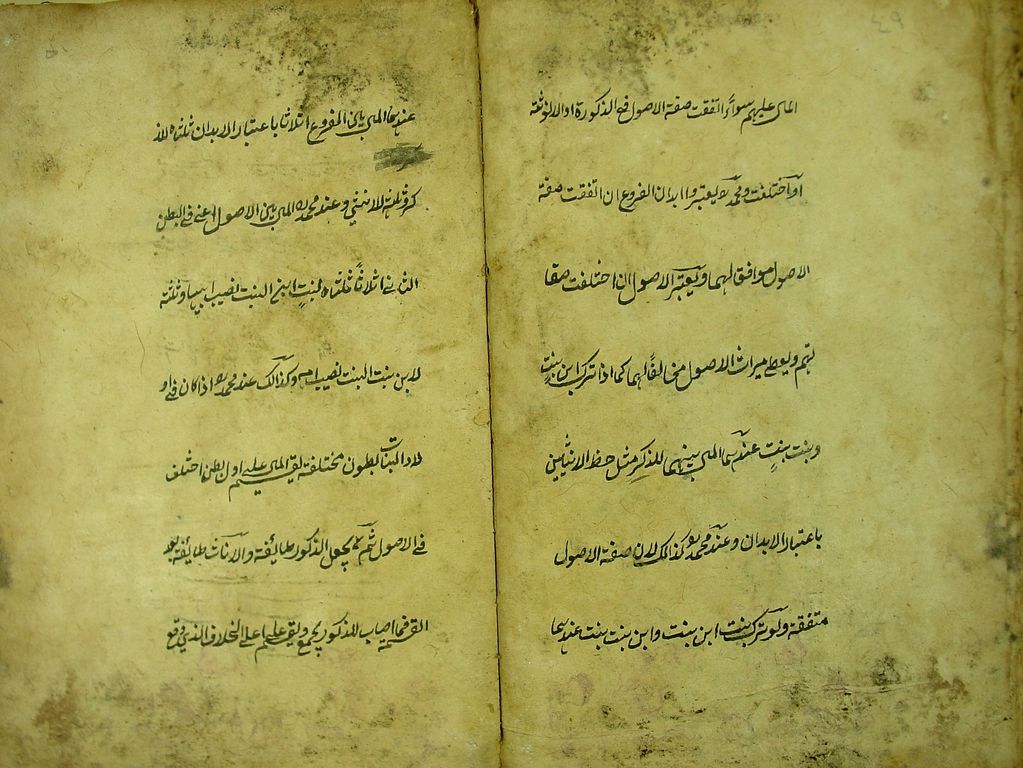 ٤٩
المال عليهم سواء اتفقت صفة الاصول في الذكورة او الانوثة
او اختلفت ومحمد رح يعتبر ابدان الفروع ان اتفقت صفة
الاصول موافقا لهما ويعتبر الاصول ان اختلفت صفا
تهم ويعطى ميراث الاصول مخالفا لهما كما اذا ترك ابن بنت
وبنت بنت عندهما المال بينهما للذكر مثل حظ الانثيين
باعتبار الابدان وعند محمد رح كذلك لان صفة الاصول
متفقة ولو ترك بنت ابن بنت وابن بنت بنت عندهما
عندهما المال بين الفروع اثلاثا باعتبار الابدان ثلثاه للذ
كر وثلثه للانثى وعند محمد رح المال بين الاصول اعنى فى البطن
الثانى اثلاثا ثلثاه لبنت ابن البنت نصيب ابيها وثلثه
لابن بنت البنت نصيب امه وكذلك عند محمد رح اذا كان فى او
لاد البنات بطون مختلفة يقسم المال على اول بطن اختلف
فى الاصول ثم يجعل الذكور طائفة والاناث طائفة بعد
القسمة فما اصاب للذكور يجمع ويقسم على اعلى الخلاف الذى وقع